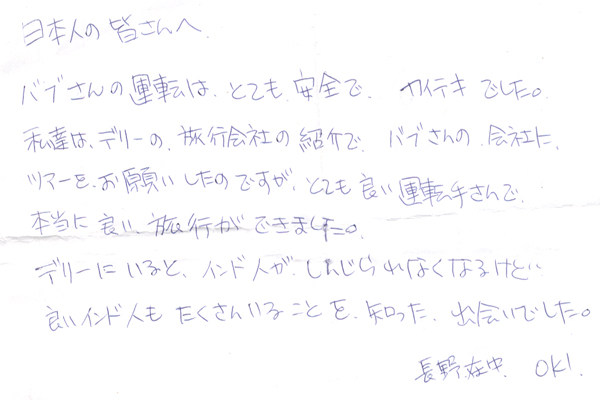 日本人の皆さんへ.
バブさんの運転は、とても安全で、カイテキでした。
私達は、デリーの、旅行会社の紹介で、バブさんの会社に、
ツアーを、お願いしたのですが、とても良い運転手さんで、
本当に良い、旅行ができました。
デリーにいると、インド人が、しんじられなくなるけど…
良いインド人もたくさんいることを、知った、出会いでした。
長野在中. OK!.